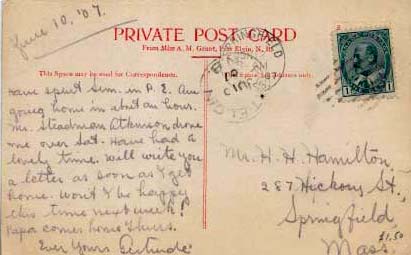 June 10, '07.
PRIVATE POST CARD
From Miss A. M. Grant, Port Elgin, N. B.
This Space may be used for Correspondence.
Have spent Sun. in P. E. Am
going home in about an hour.
Mr. Steadman Atkinson drove
me over Sat. Have had a
lovely time. Will write you
a letter as soon as I get
home. Won't I be happy
this time next week!
Papa comes home Thurs.
Ever Yours Gertrude
Mr. H. H. Hamilton,
287 Hickory St.,
Springfield,
Mass.
$1.50